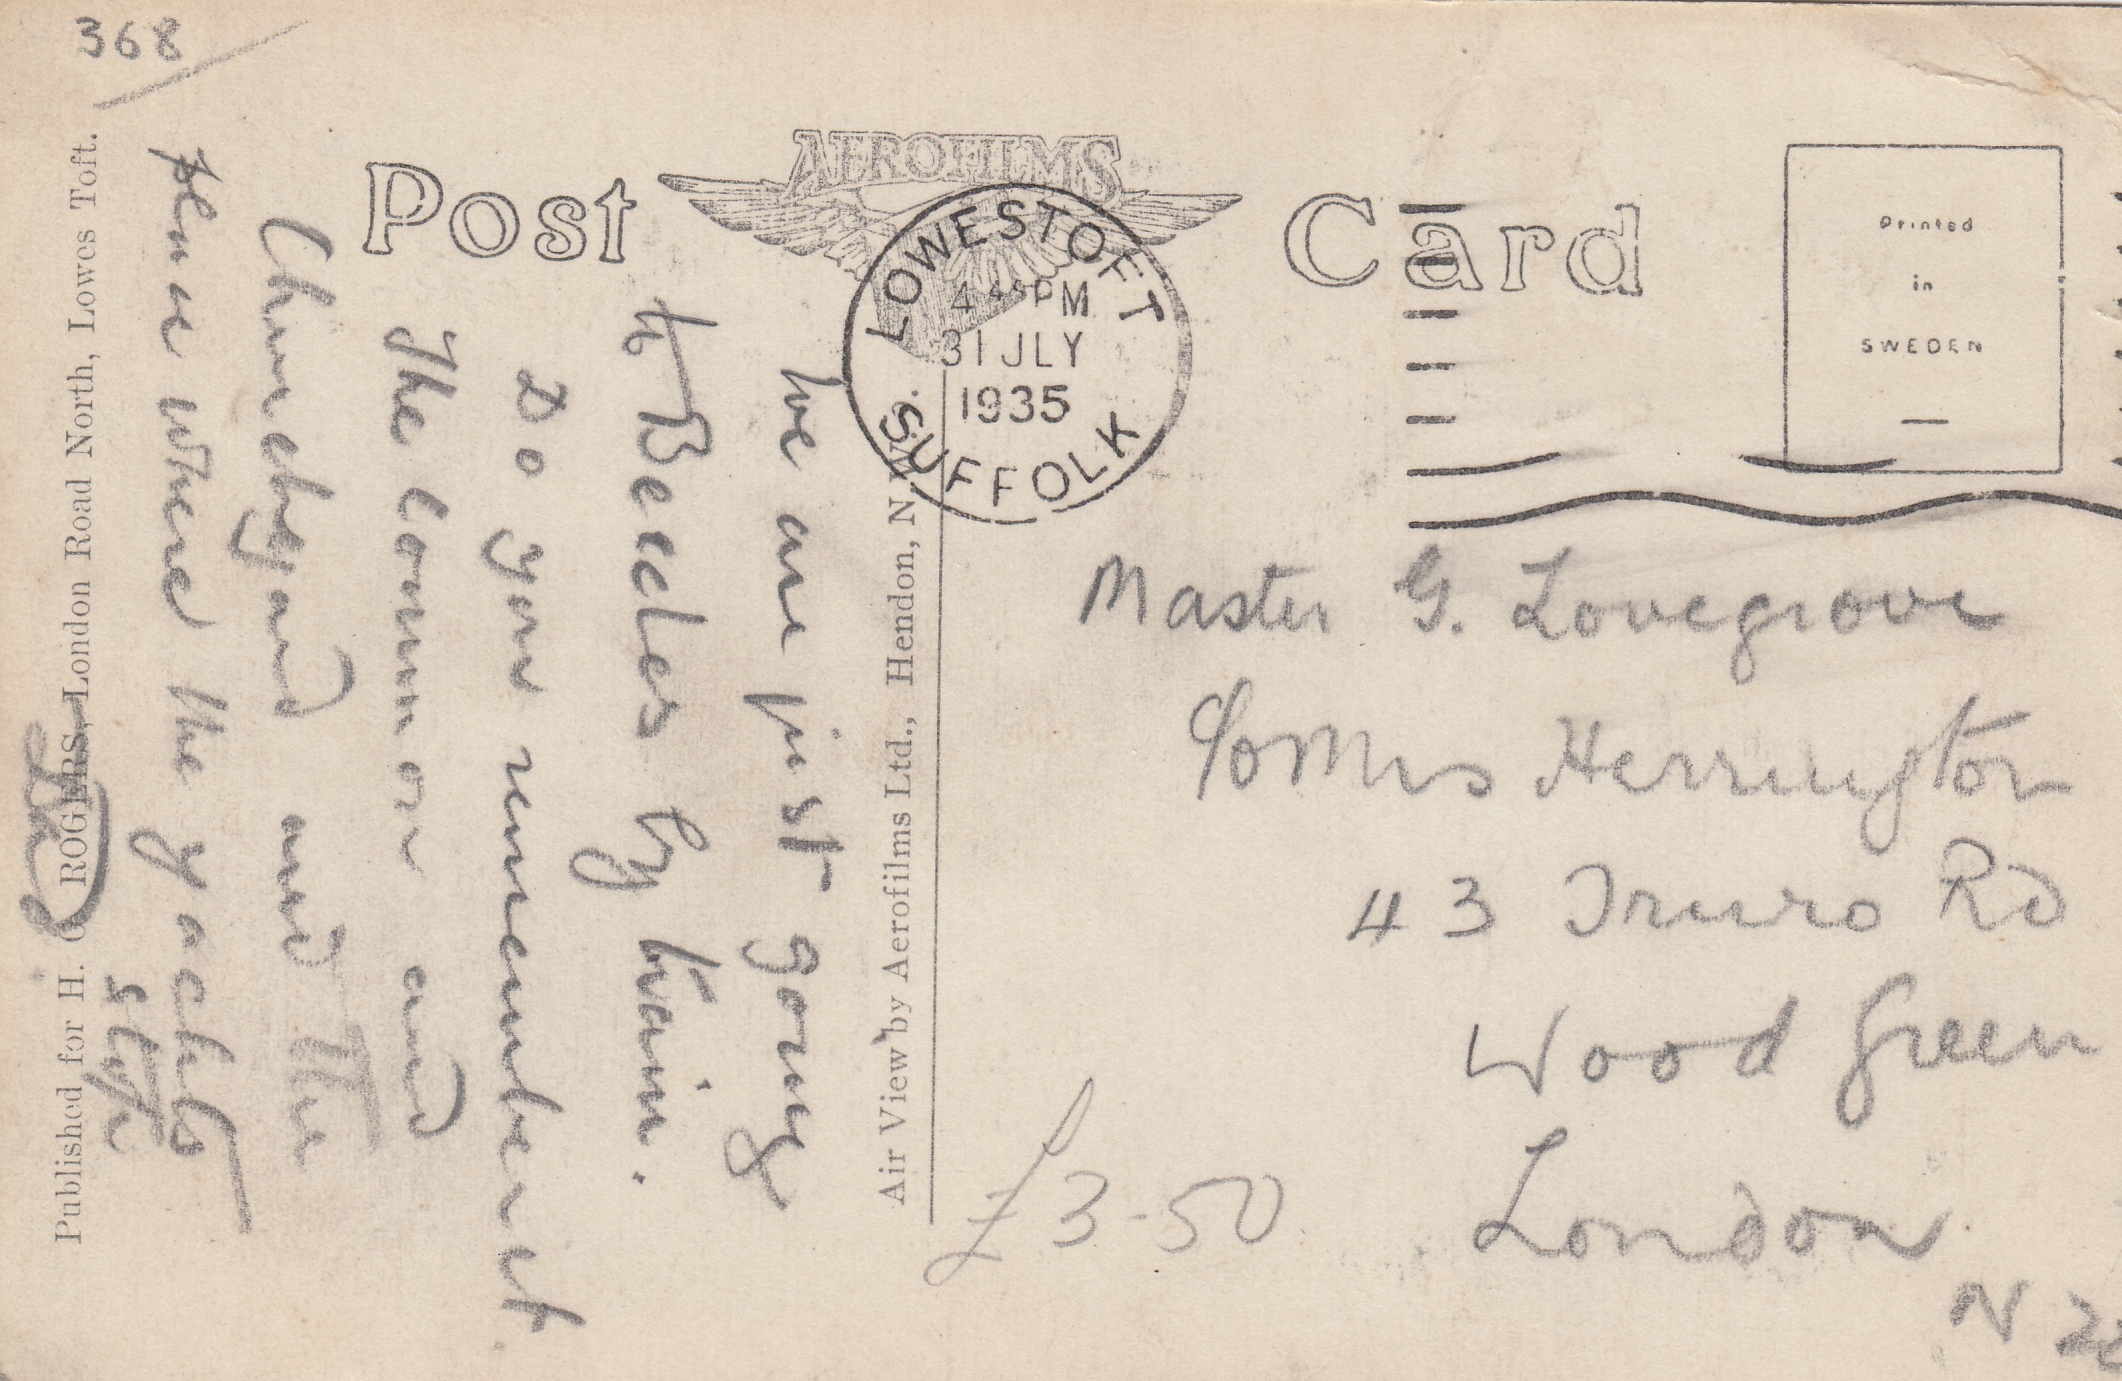 368
Post
AEROFILMS
Card
Printed
in
SWEDEN
LOWESTOFT
4 45 PM
31 JLY
1935
SUFFOLK
We are just going
to Beccles by train.
Do you remember it
The common and
Churchyard and the
fence where the yachts
stop
Air View by Aerofilms Ltd., Hendon, N.W.9.
Published for H. G. ROGERS, London Road North, Lowes Toft.
Master G. Lovegrove
C/o Mrs Herrington
43 Truro Rd
Wood Green
London
N 22
£3-50